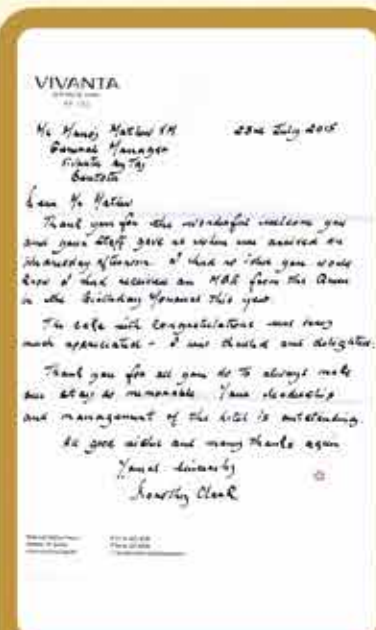 VIVANTA
Mr Manoj Mathew VM 23rd July 2015
General Manager
Vivanta by Taj
Bentota
Dear Mr Mathew
Thank you for the wonderful welcome you
and your staff gave us when we arrived on
Wednesday afternoon. I had no idea you would
know I had received an MBE from the Queen
in the Birthday Honours this year.
The cake with congratulations was very
much appreciated - I was thrilled and delighted.
Thank you for all you do to always make
our stays so memorable. Your leadership
and management of the hotel is outstanding.
All good wishes and many thanks again
Yours sincerely
Dorothy Clark